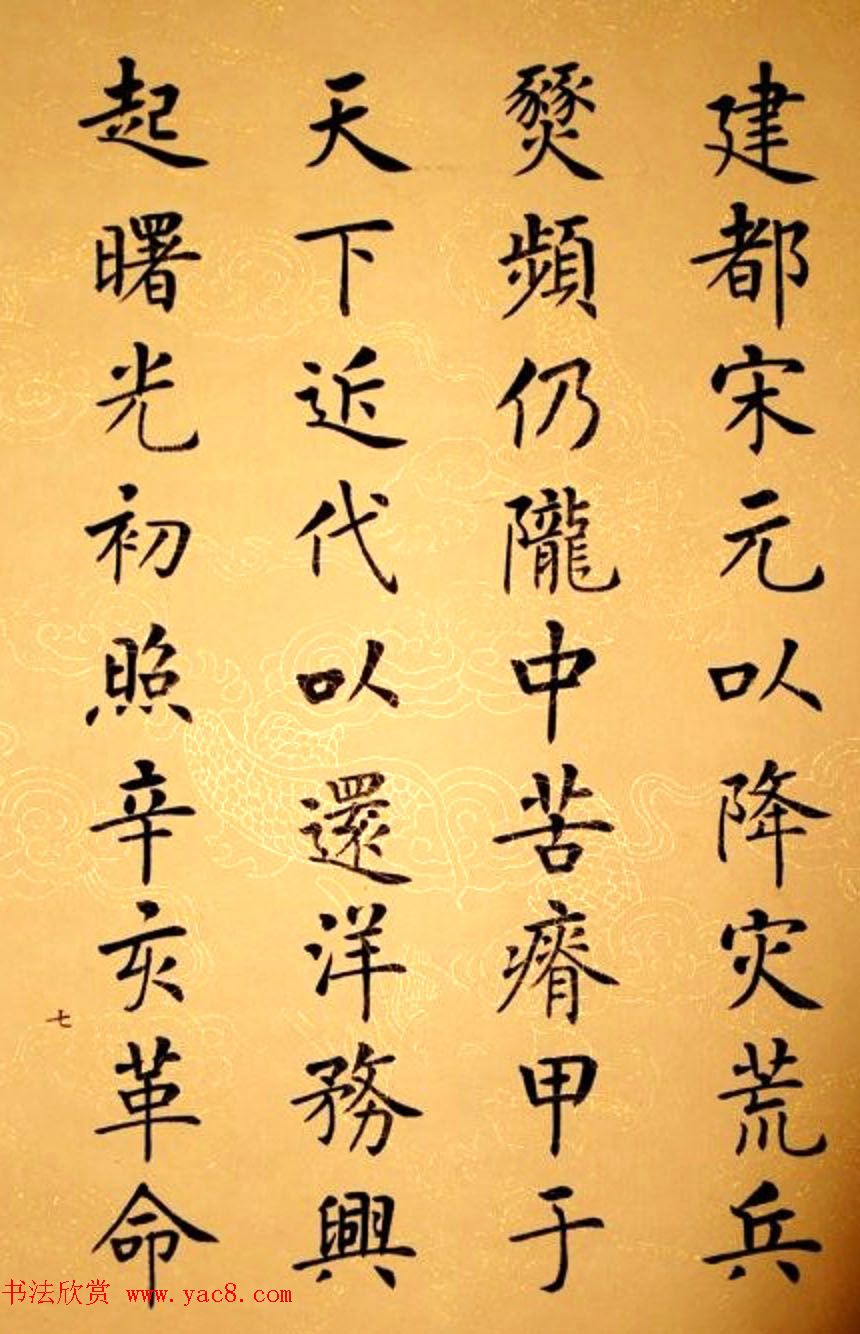 建都宋元以降灾荒兵
燹頻仍隴中苦瘠甲于
天下近代以還洋務興
起曙光初照辛亥革命
七
书法欣赏 www.yac8.com